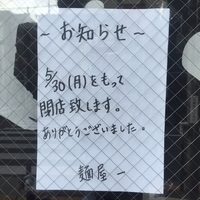 ～お知らせ～
5/30(月)をもって
閉店致します。
ありがとうございました。
麺屋 一